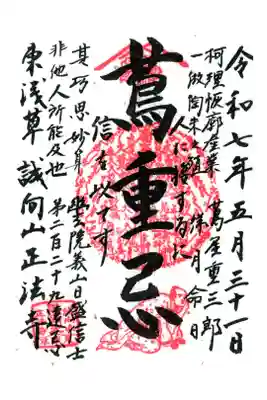 令和七年五月三十一日
柯理恢廓産業 蔦屋重三郎
一倣陶朱之
祥月命日
人に接するに
蔦重忌
信を以てす
其巧思妙算
非他人所能及也
幽玄院義山日盛信士
第二百二十九遠忌
東浅草 誠向山正法寺